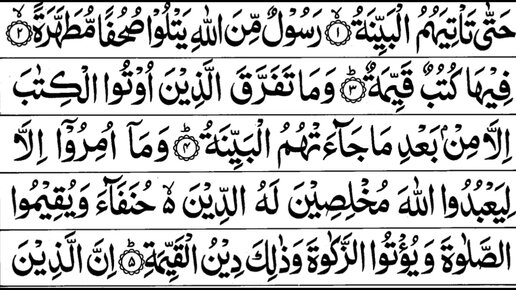 حَتّٰى تَاْتِيَهُمُ الْبَيِّنَةُ ۙ﴿۱﴾ رَسُوْلٌ مِّنَ اللّٰهِ يَتْلُوْا صُحُفًا مُّطَهَّرَةً ۙ﴿۲﴾
فِيْهَا كُتُبٌ قَيِّمَةٌ ؕ﴿۳﴾ وَمَا تَفَرَّقَ الَّذِيْنَ اُوْتُوا الْكِتٰبَ
اِلَّا مِنْۢ بَعْدِ مَا جَآءَتْهُمُ الْبَيِّنَةُ ؕ﴿۴﴾ وَمَاۤ اُمِرُوْۤا اِلَّا
لِيَعْبُدُوا اللّٰهَ مُخْلِصِيْنَ لَهُ الدِّيْنَ ۙ۬ حُنَفَآءَ وَيُقِيْمُوا
الصَّلٰوةَ وَيُؤْتُوا الزَّكٰوةَ وَذٰلِكَ دِيْنُ الْقَيِّمَةِ ؕ﴿۵﴾ اِنَّ الَّذِيْنَ